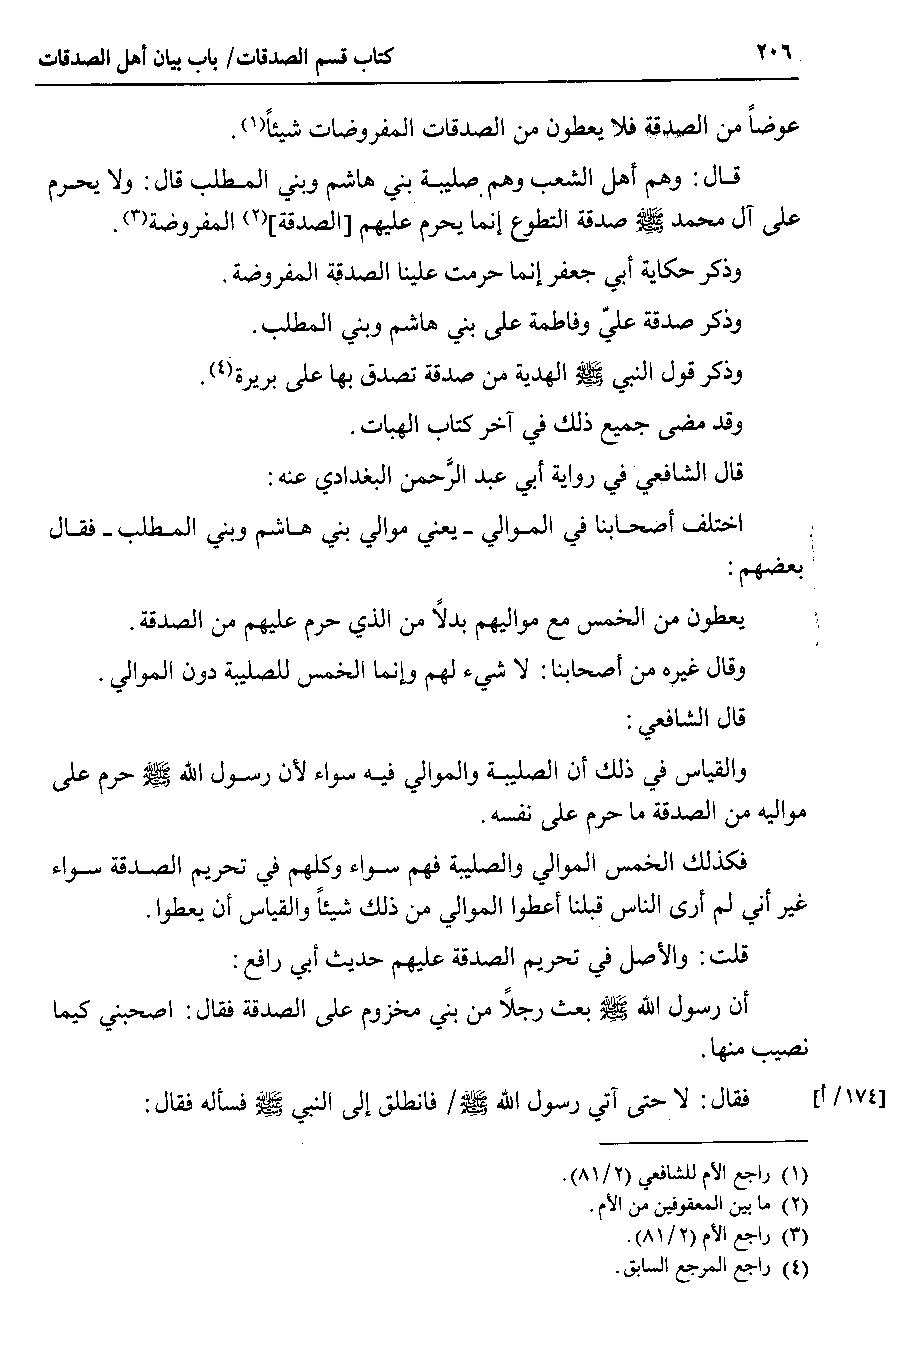 ٢٠٦
كتاب قسم الصدقات/ باب بيان أهل الصدقات
عوضاً من الصدقة فلا يعطون من الصدقات المفروضات شيئاً(١).
قال: وهم أهل الشعب وهم صليبة بني هاشم وبني المطلب قال: ولا يحرم
على آل محمد ﷺ صدقة التطوع إنما يحرم عليهم [الصدقة](٢) المفروضة(٣).
وذكر حكاية أبي جعفر إنما حرمت علينا الصدقة المفروضة.
وذكر صدقة عليّ وفاطمة على بني هاشم وبني المطلب.
وذكر قول النبي ﷺ الهدية من صدقة تصدق بها على بريرة(٤).
وقد مضى جميع ذلك في آخر كتاب الهبات.
قال الشافعي في رواية أبي عبد الرَّحمن البغدادي عنه:
اختلف أصحابنا في الموالي ـ يعني موالي بني هاشم وبني المطلب ـ فقال
بعضهم:
يعطون من الخمس مع مواليهم بدلاً من الذي حرم عليهم من الصدقة.
وقال غيره من أصحابنا: لا شيء لهم وإنما الخمس للصليبة دون الموالي.
قال الشافعي:
والقياس في ذلك أن الصليبة والموالي فيه سواء لأن رسول الله ﷺ حرم على
مواليه من الصدقة ما حرم على نفسه.
فكذلك الخمس الموالي والصليبة فهم سواء وكلهم في تحريم الصدقة سواء
غير أني لم أرى الناس قبلنا أعطوا الموالي من ذلك شيئاً والقياس أن يعطوا.
قلت: والأصل في تحريم الصدقة عليهم حديث أبي رافع:
أن رسول الله ﷺ بعث رجلاً من بني مخزوم على الصدقة فقال: اصحبني كيما
نصيب منها.
فقال: لا حتى آتي رسول الله ﷺ/ فانطلق إلى النبي ﷺ فسأله فقال:
[١٧٤/ أ]
(١) راجع الأم للشافعي (٨١/٢).
(٢) ما بين المعقوفين من الأم.
(٣) راجع الأم (٨١/٢).
(٤) راجع المرجع السابق.